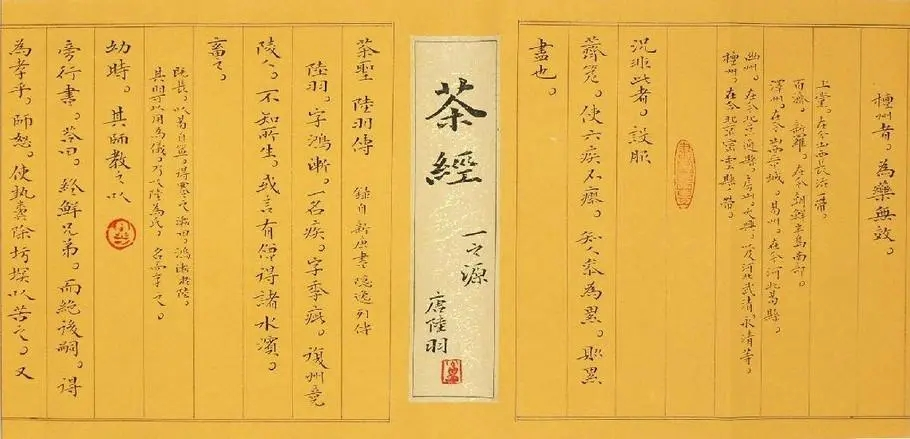 檀州者。為藥無效。
上黨。在今山西長治一帶。
百濟。新羅。在今朝鮮半島南部。
澤州。在今山西晉城。易州。在今河北易縣。
幽州。在今北京通縣。房山。大興。以及河北武清。永清等。
檀州。在今北京密雲縣一帶。
況非此者。設服
薺苨。使六疾不瘳。知人參為累。則累
盡也。
茶經
一之源
唐陸羽
茶聖 陸羽傳 錄自新唐書隱逸列傳
陸羽。字鴻漸。一名疾。字季疵。復州竟
陵人。不知所生。或言有僧得諸水濱。
畜之。
既長。以易自筮。得蹇之漸曰。鴻漸于陸。
其羽可以用為儀。乃以陸為氏。名而字之。
幼時。其師教之以
旁行書。答曰。終鮮兄弟。而絕後嗣。得
為孝乎。師怒。使執糞除圬塓以苦之。又